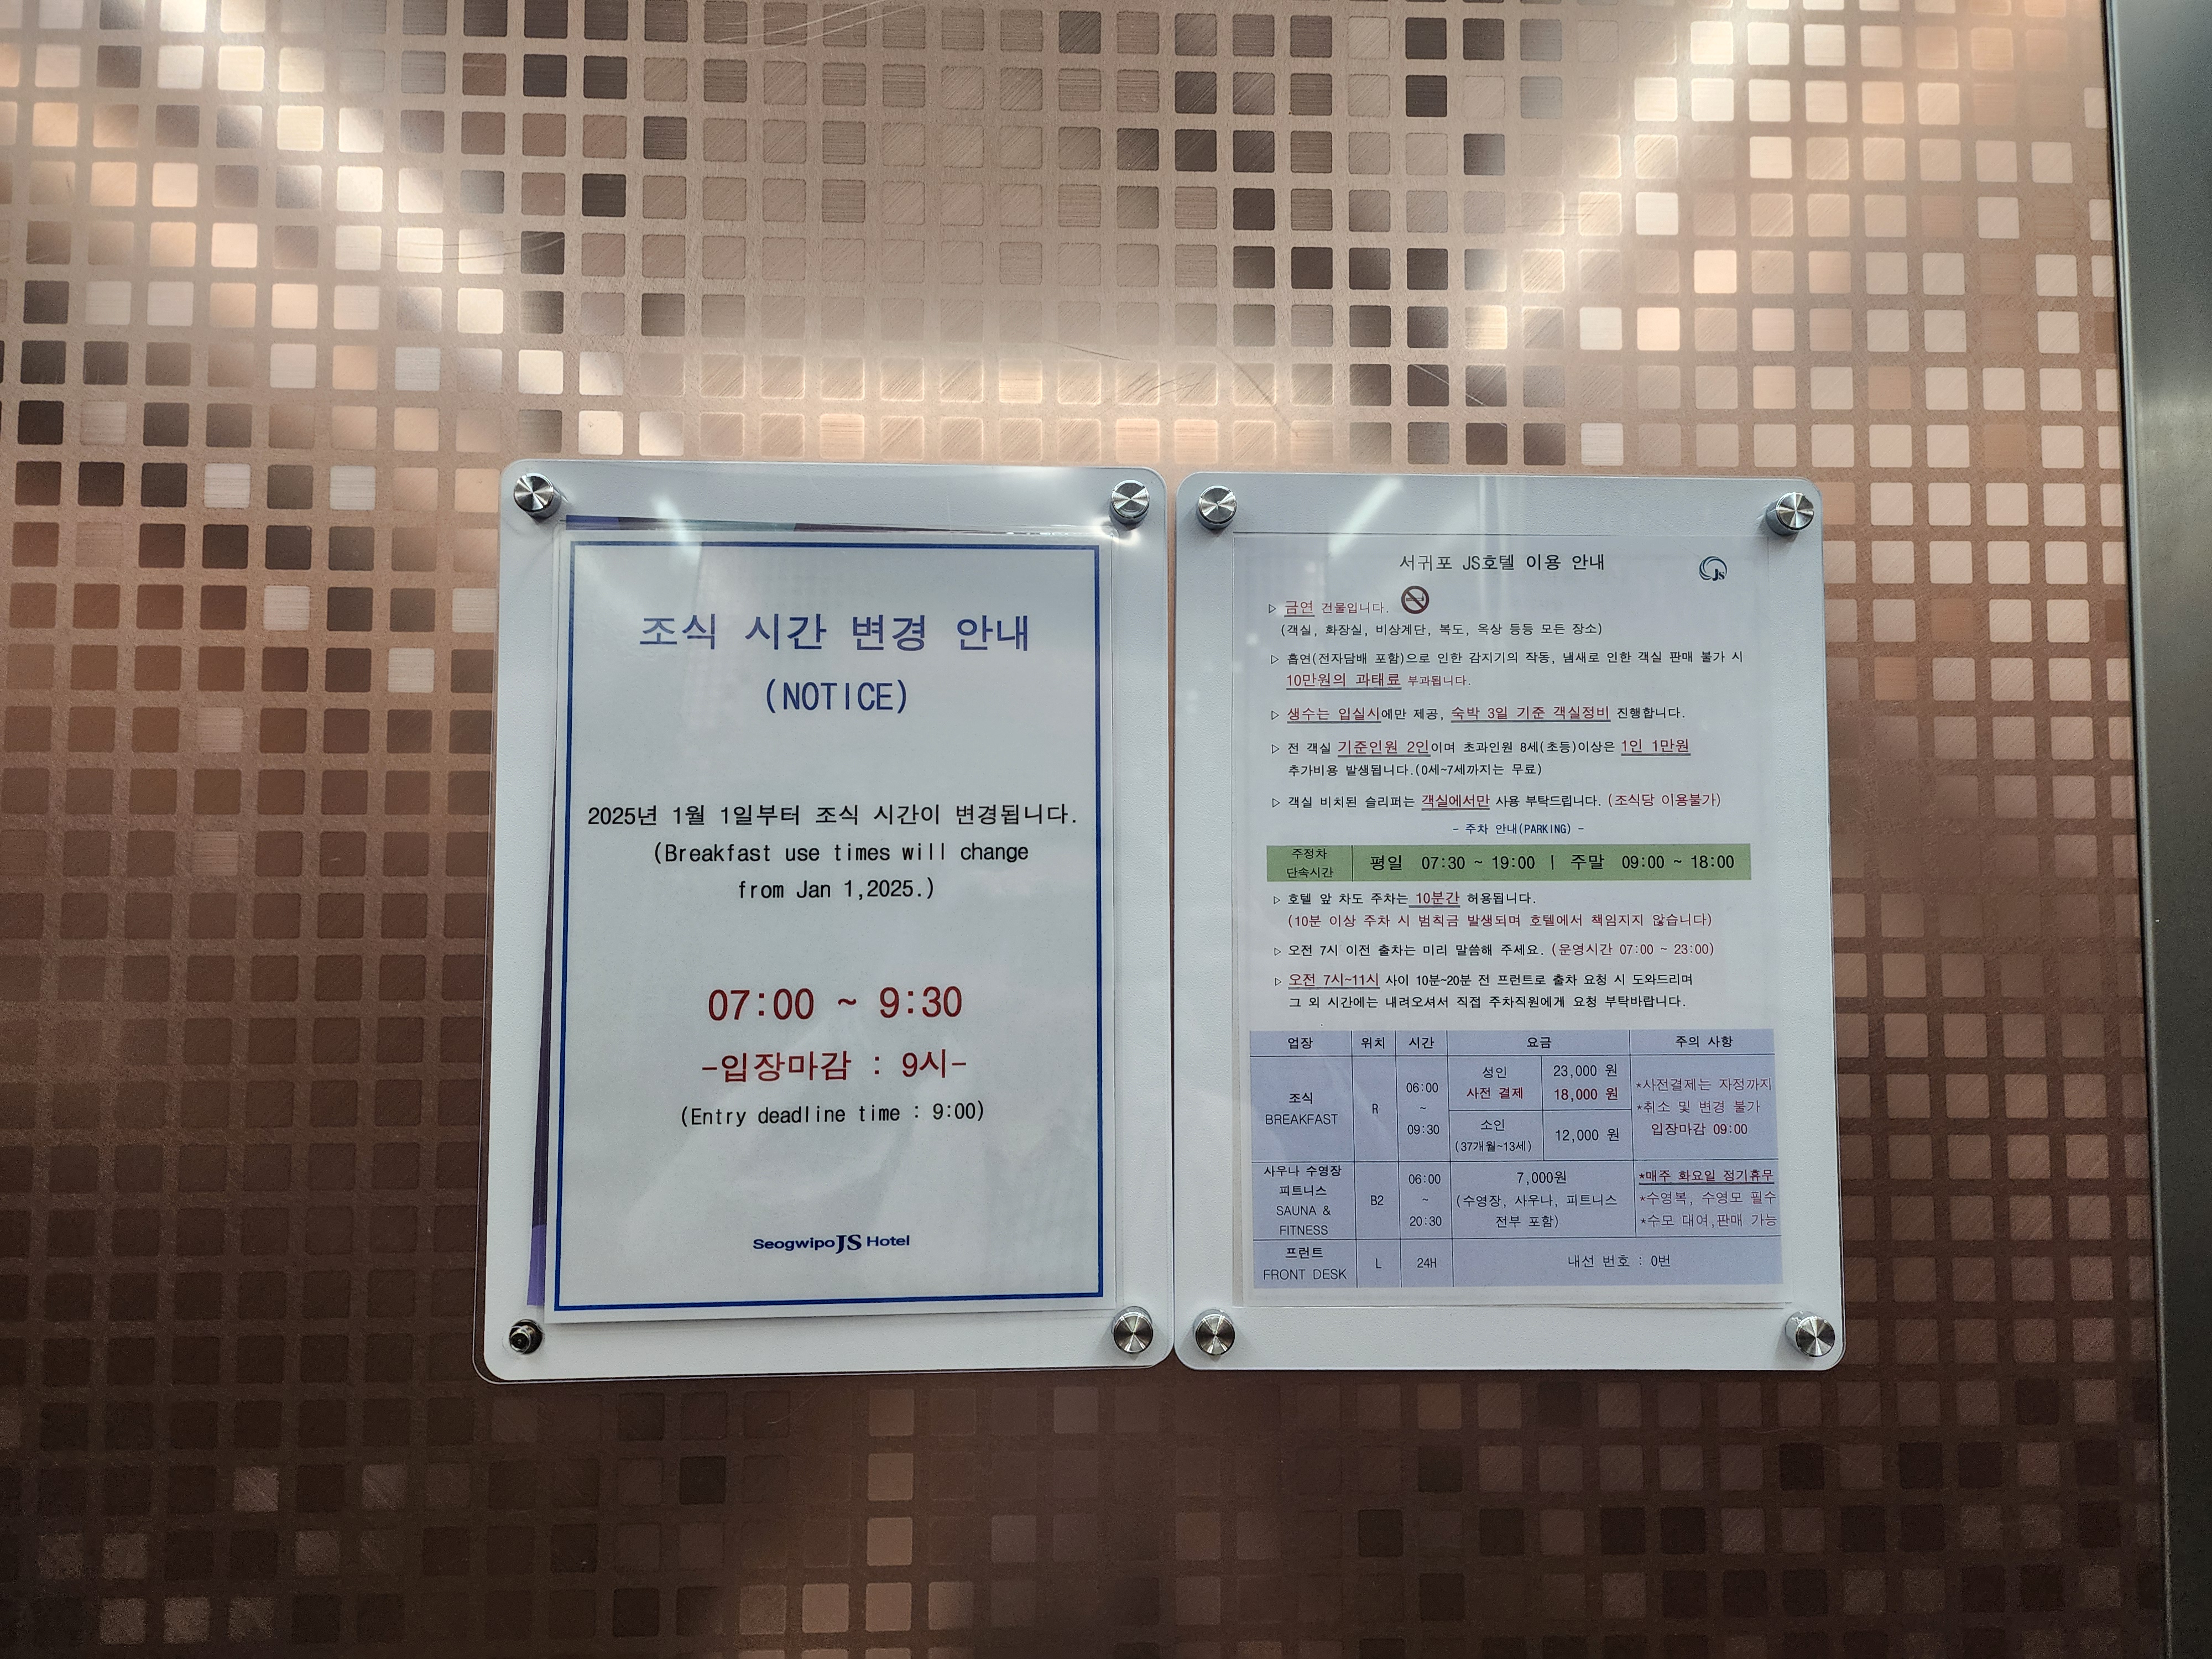 조식 시간 변경 안내
(NOTICE)
2025년 1월 1일부터 조식 시간이 변경됩니다.
(Breakfast use times will change
from Jan 1,2025.)
07:00 ~ 9:30
-입장마감 : 9시-
(Entry deadline time : 9:00)
Seogwipo JS Hotel
서귀포 JS호텔 이용 안내
JS
▷ 금연 건물입니다.
(객실, 화장실, 비상계단, 복도, 옥상 등등 모든 장소)
▷ 흡연(전자담배 포함)으로 인한 감지기의 작동, 냄새로 인한 객실 판매 불가 시
10만원의 과태료 부과됩니다.
▷ 생수는 입실시에만 제공, 숙박 3일 기준 객실정비 진행합니다.
▷ 전 객실 기준인원 2인이며 초과인원 8세(초등)이상은 1인 1만원
추가비용 발생됩니다.(0세~7세까지는 무료)
▷ 객실 비치된 슬리퍼는 객실에서만 사용 부탁드립니다. (조식당 이용불가)
- 주차 안내(PARKING) -
주정차
단속시간
평일 07:30 ~ 19:00 | 주말 09:00 ~ 18:00
▷ 호텔 앞 차도 주차는 10분간 허용됩니다.
(10분 이상 주차 시 범칙금 발생되며 호텔에서 책임지지 않습니다)
▷ 오전 7시 이전 출차는 미리 말씀해 주세요. (운영시간 07:00 ~ 23:00)
▷ 오전 7시~11시 사이 10분~20분 전 프런트로 출차 요청 시 도와드리며
그 외 시간에는 내려오셔서 직접 주차직원에게 요청 부탁바랍니다.
업장 위치 시간 요금 주의 사항
조식
BREAKFAST
R
06:00
~
09:30
성인
사전 결제
23,000 원
18,000 원
소인
(37개월~13세)
12,000 원
*사전결제는 자정까지
*취소 및 변경 불가
입장마감 09:00
사우나 수영장
피트니스
SAUNA &
FITNESS
B2
06:00
~
20:30
7,000원
(수영장, 사우나, 피트니스
전부 포함)
*매주 화요일 정기휴무
*수영복, 수영모 필수
*수모 대여,판매 가능
프런트
FRONT DESK
L
24H
내선 번호 : 0번